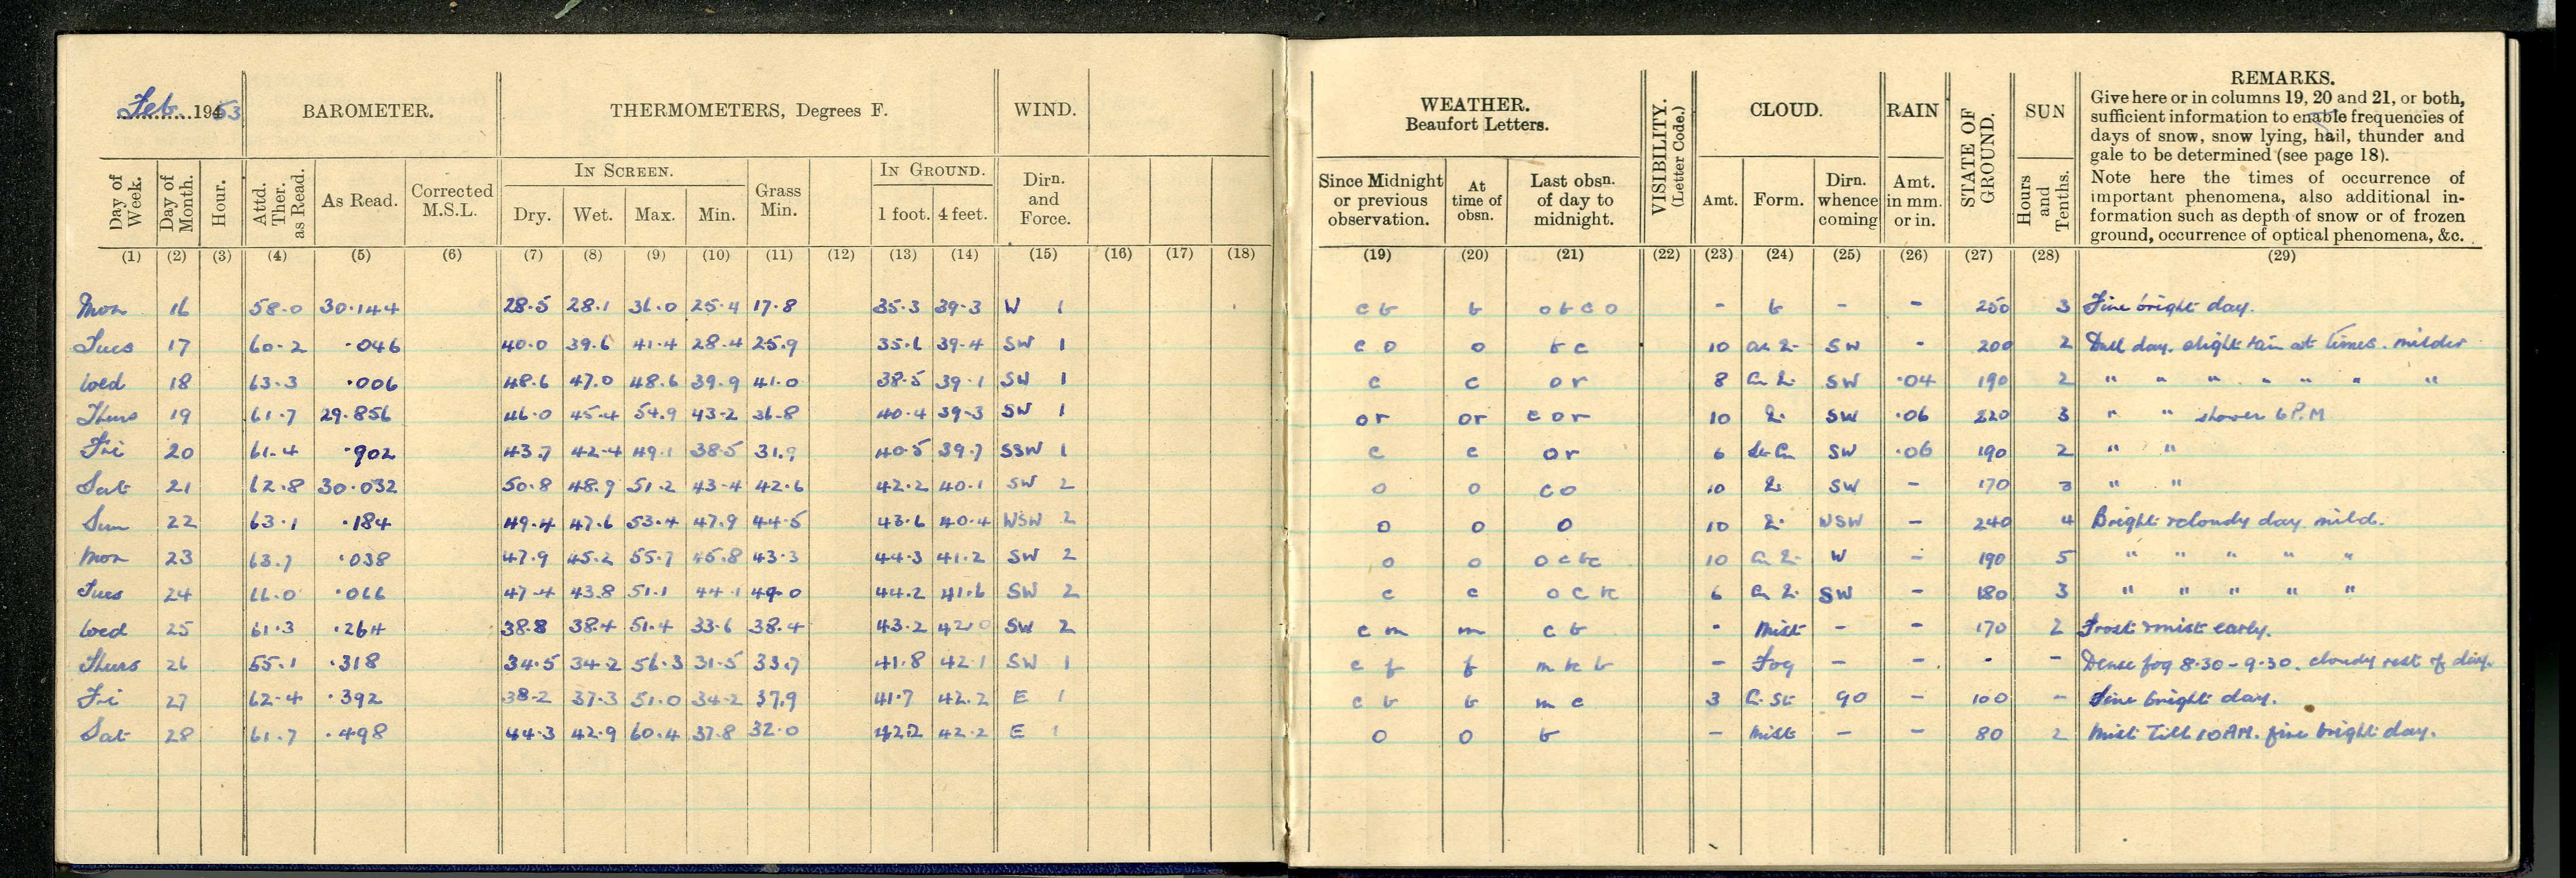 Feb. 1953 BAROMETER. THERMOMETERS, Degrees F. WIND. WEATHER. Beaufort Letters. VISIBILITY. (Letter Code.) CLOUD. RAIN STATE OF GROUND. SUN REMARKS.
Give here or in columns 19, 20 and 21, or both,
sufficient information to enable frequencies of
days of snow, snow lying, hail, thunder and
gale to be determined (see page 18).
Note here the times of occurrence of
important phenomena, also additional in-
formation such as depth of snow or of frozen
ground, occurrence of optical phenomena, &c.
IN SCREEN. IN GROUND.
Day of Week. Day of Month. Hour. Attd. Ther. as Read. As Read. Corrected M.S.L. Dry. Wet. Max. Min. Grass Min. 1 foot. 4 feet. Dirn. and Force. Since Midnight or previous observation. At time of obsn. Last obsn. of day to midnight. Amt. Form. Dirn. whence coming Amt. in mm. or in. Hours and Tenths.
(1) (2) (3) (4) (5) (6) (7) (8) (9) (10) (11) (12) (13) (14) (15) (16) (17) (18) (19) (20) (21) (22) (23) (24) (25) (26) (27) (28) (29)
Mon 16 58.0 30.144 28.5 28.1 36.0 25.4 17.8 35.3 39.3 W 1 c b b o b c o - b - - 250 3 Fine bright day.
Tues 17 60.2 .046 40.0 39.6 41.4 28.4 25.9 35.6 39.4 SW 1 c o o b c 10 SW - 200 2 Dull day. slight rain at times. milder
Wed 18 63.3 .006 48.6 47.0 48.6 39.9 41.0 38.5 39.1 SW 1 c c o r 8 SW .04 190 2 " " " " " " "
Thurs 19 61.7 29.856 46.0 45.4 54.9 43.2 36.8 40.4 39.3 SW 1 o r o r c o r 10 SW .06 220 3 " " shower 6 P.M
Fri 20 61.4 .902 43.7 42.4 49.1 38.5 31.9 40.5 39.7 SSW 1 c c o r 6 SW .06 190 2 " "
Sat 21 62.8 30.032 50.8 48.9 51.2 43.4 42.6 42.2 40.1 SW 2 o o c o 10 SW - 170 3 " "
Sun 22 63.1 .184 49.4 47.6 53.4 47.9 44.5 43.6 40.4 WSW 2 o o o 10 WSW - 240 4 Bright & cloudy day mild.
Mon 23 63.7 .038 47.9 45.2 55.7 45.8 43.3 44.3 41.2 SW 2 o o o c bc 10 W - 190 5 " " " " "
Tues 24 66.0 .066 47.4 43.8 51.1 44.1 49.0 44.2 41.6 SW 2 c c o c bc 6 SW - 180 3 " " " " "
Wed 25 61.3 .264 38.8 38.4 51.4 33.6 38.4 43.2 42.0 SW 2 c m m c b - Mist - - 170 2 Frost & mist early.
Thurs 26 55.1 .318 34.5 34.2 56.3 31.5 33.7 41.8 42.1 SW 1 c f f m bc b - Fog - - - - Dense fog 8.30 - 9.30. cloudy rest of day.
Fri 27 62.4 .392 38.2 37.3 51.0 34.2 37.9 41.7 42.2 E 1 c b b m c 3 Ci. St 90 - 100 - Fine bright day.
Sat 28 61.7 .498 44.3 42.9 60.4 37.8 32.0 42.2 42.2 E 1 o o b - mist - - 80 2 Mist till 10 AM. fine bright day.